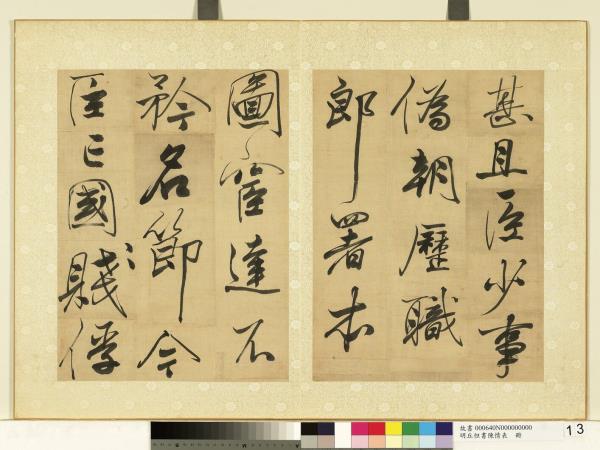 甚且臣少事
偽朝歷職
郎署本
圖宦達不
矜名節今
臣亡國賤俘
故書 000640N000000000
明丘書陳情表 冊
13